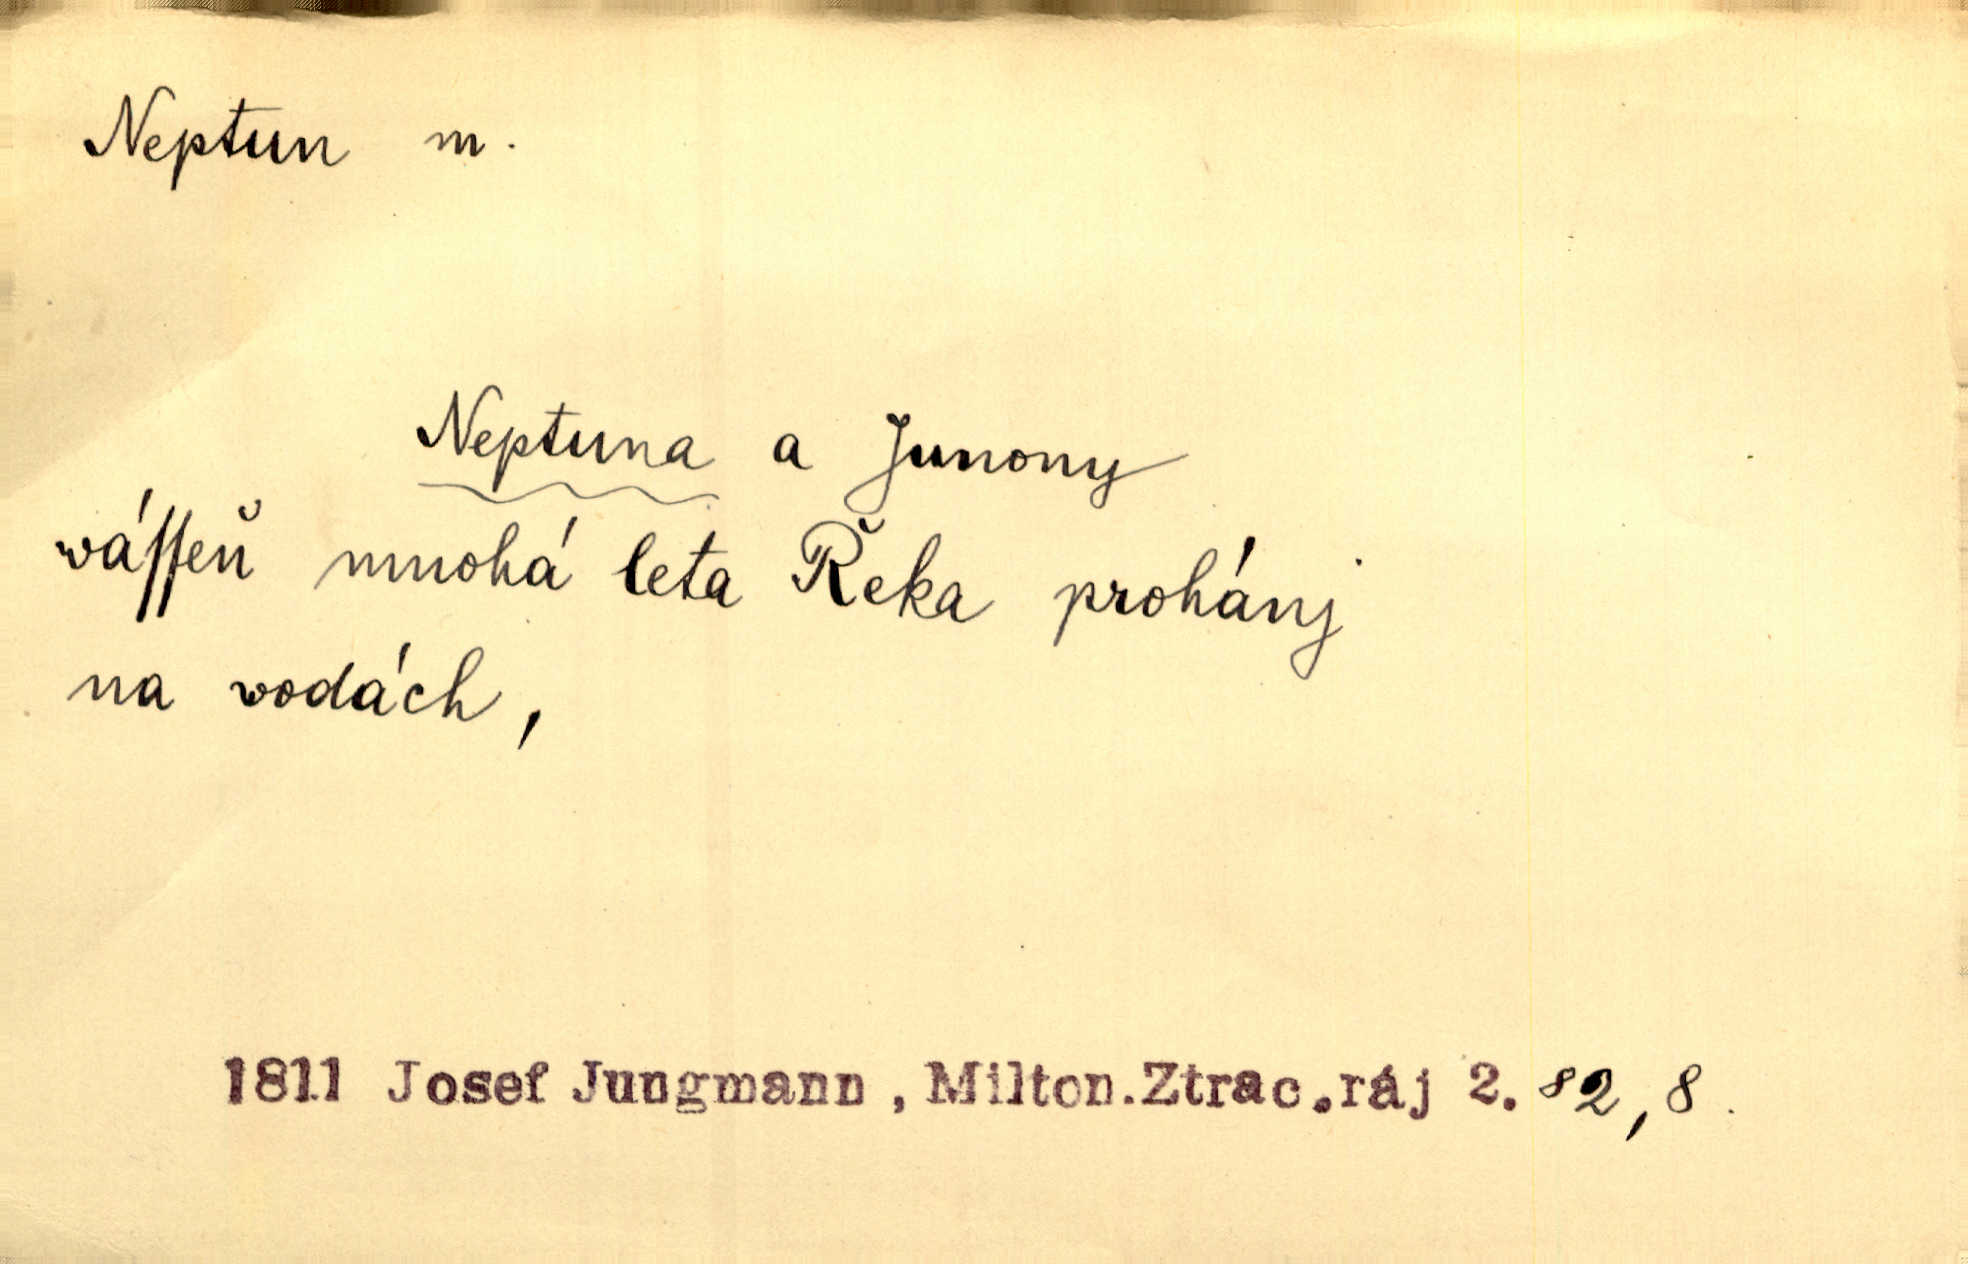 Neptun m.
Neptuna a Junony
wáſſeň mnohá leta Řeka prohánj
na wodách,
1811 Josef Jungmann, Milton.Ztrac.ráj 2. 82,8.